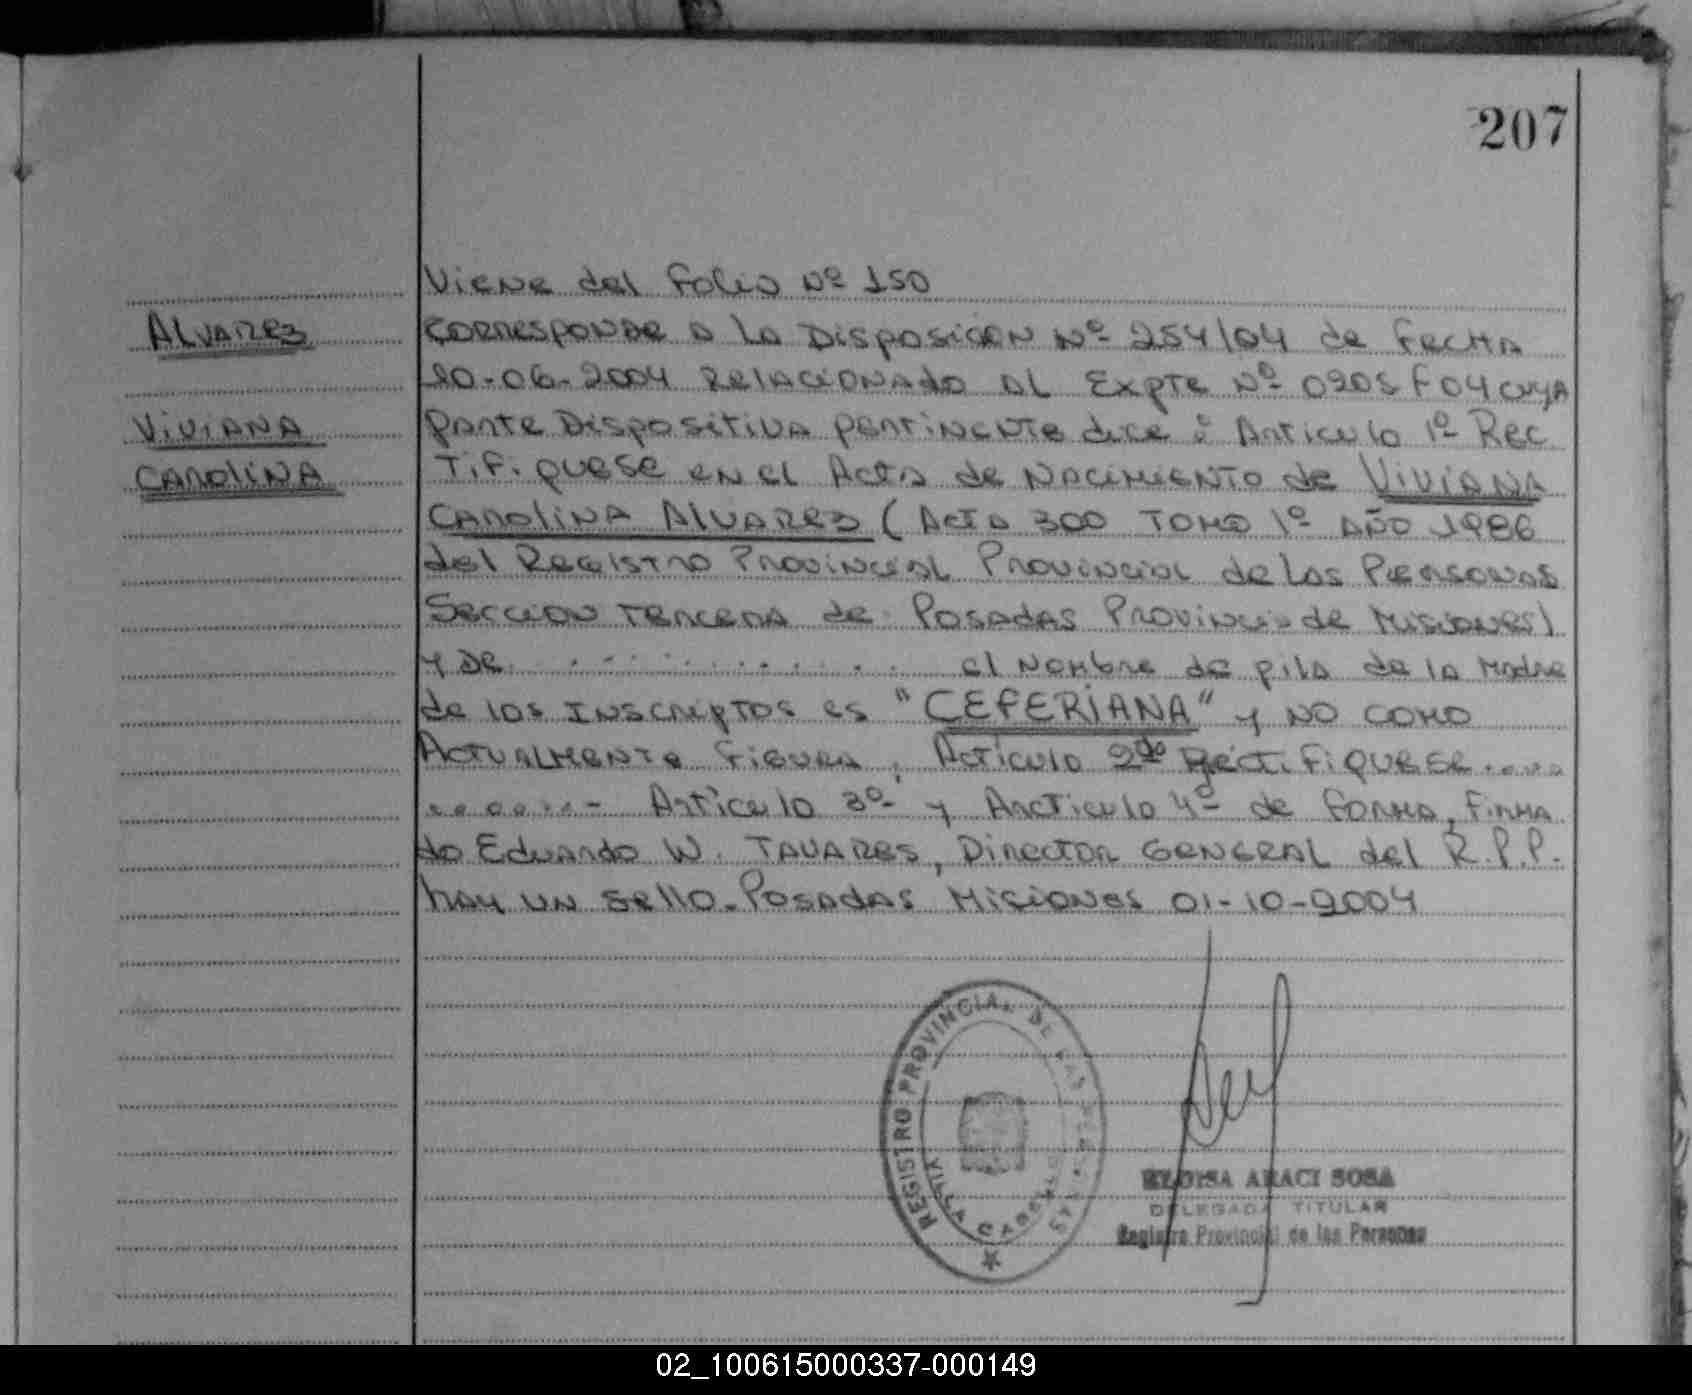 207
Viene del Folio Nº 150
ALVAREZ
CORRESPONDE A LA DISPOSICION Nº 254/04 de FECHA
20-06-2004 RELACIONADO AL EXPTE Nº 0205 F 04 CUYA
VIVIANA
parte DISPOSITIVA pertinente dice : Articulo 1º REC
CAROLINA
TIFIQUESE en el Acta de NACIMIENTO de VIVIANA
CAROLINA ALVAREZ ( ACTA 300 TOMO 1º AÑO 1986
del REGISTRO PROVINCIAL PROVINCIAL de Las PERSONAS
SECCION TERCERA de POSADAS PROVINCIA de MISIONES)
y DE. . . . . . . . . . . . . el NOMBRE de pila de la Madre
de los INSCRIPTOS es "CEFERIANA" y NO COMO
ACTUALMENTE FIGURA, Articulo 2do RECTIFIQUESE.....
........- Articulo 3º y Arcticulo 4º de forma, FIRMA
do Eduardo W. TAVARES, Director GENERAL del R.P.P.
hay UN sello. POSADAS MISIONES 01-10-2004
REGISTRO PROVINCIAL DE LAS PERSONAS
VILLA CABELLO
ELOISA ARACI SOSA
DELEGADA TITULAR
Registro Provincial de las Personas
02_100615000337-000149